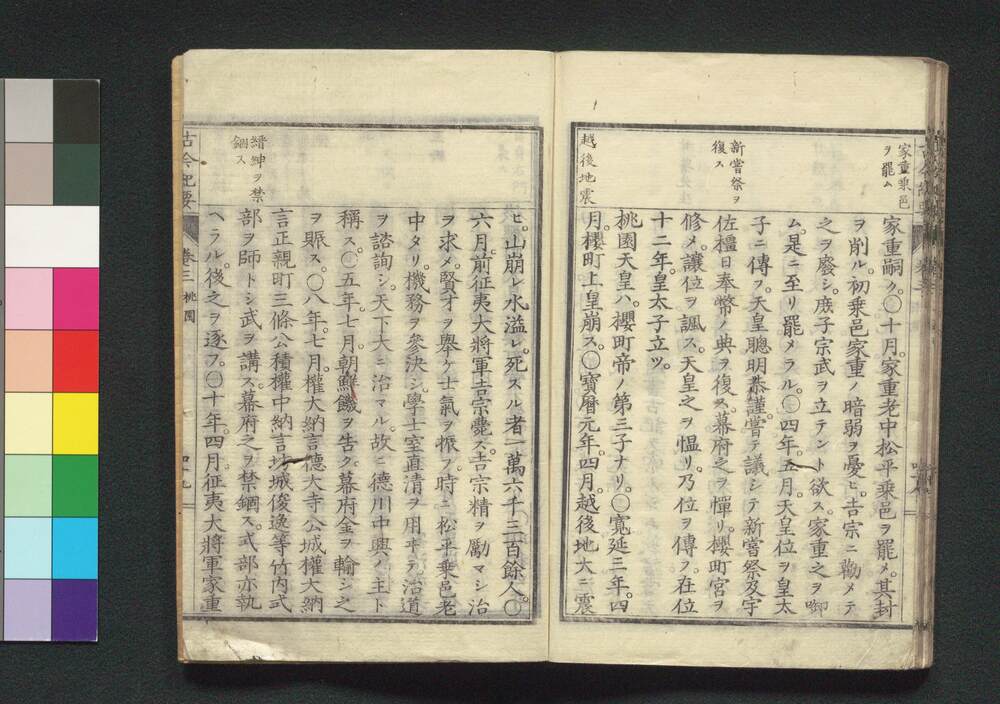 家重乘邑
ヲ罷ム
新嘗祭ヲ
復ス
越後地震
家重嗣ク。〇十月。家重老中松平乘邑ヲ罷メ。其封
ヲ削ル。初乘邑家重ノ暗弱ヲ憂ヒ。吉宗ニ勸メテ
之ヲ廢シ。庶子宗武ヲ立テント欲ス。家重之ヲ啣
ム。是ニ至リ罷メラル。〇四年。五月。天皇位ヲ皇太
子ニ傳フ。天皇聰明恭謹。嘗テ議シテ新嘗祭及宇
佐橿日奉幣ノ典ヲ復ス。幕府之ヲ憚リ。櫻町宮ヲ
修メ。讓位ヲ諷ス。天皇之ヲ慍リ。乃位ヲ傳フ。在位
十二年。皇太子立ツ。
桃園天皇ハ。櫻町帝ノ第三子ナリ。〇寬延三年。四
月。櫻町上皇崩ス。〇寶曆元年。四月。越後地大ニ震
縉紳ヲ禁
錮ス
ヒ。山崩レ水溢レ。死スル者一萬六千三百餘人。〇
六月。前征夷大將軍吉宗薨ス。吉宗精ヲ勵マシ治
ヲ求メ。賢才ヲ擧ケ士氣ヲ振フ。時ニ松平乘邑老
中タリ。機務ヲ參決シ。學士室直清ヲ用ヰテ治道
ヲ諮詢シ。天下大ニ治マル。故ニ德川中興ノ主ト
稱ス。〇五年。七月。朝鮮饑ヲ告ク。幕府金ヲ輸シ之
ヲ賑ス。〇八年。七月。權大納言德大寺公城權大納
言正親町三條公積權中納言坊城俊逸等竹内式
部ヲ師トシ武ヲ講ス。幕府之ヲ禁錮ス。式部亦執
ヘラル。後之ヲ逐フ。〇十年。四月。征夷大將軍家重
古今紀要
卷三 桃園
四十九